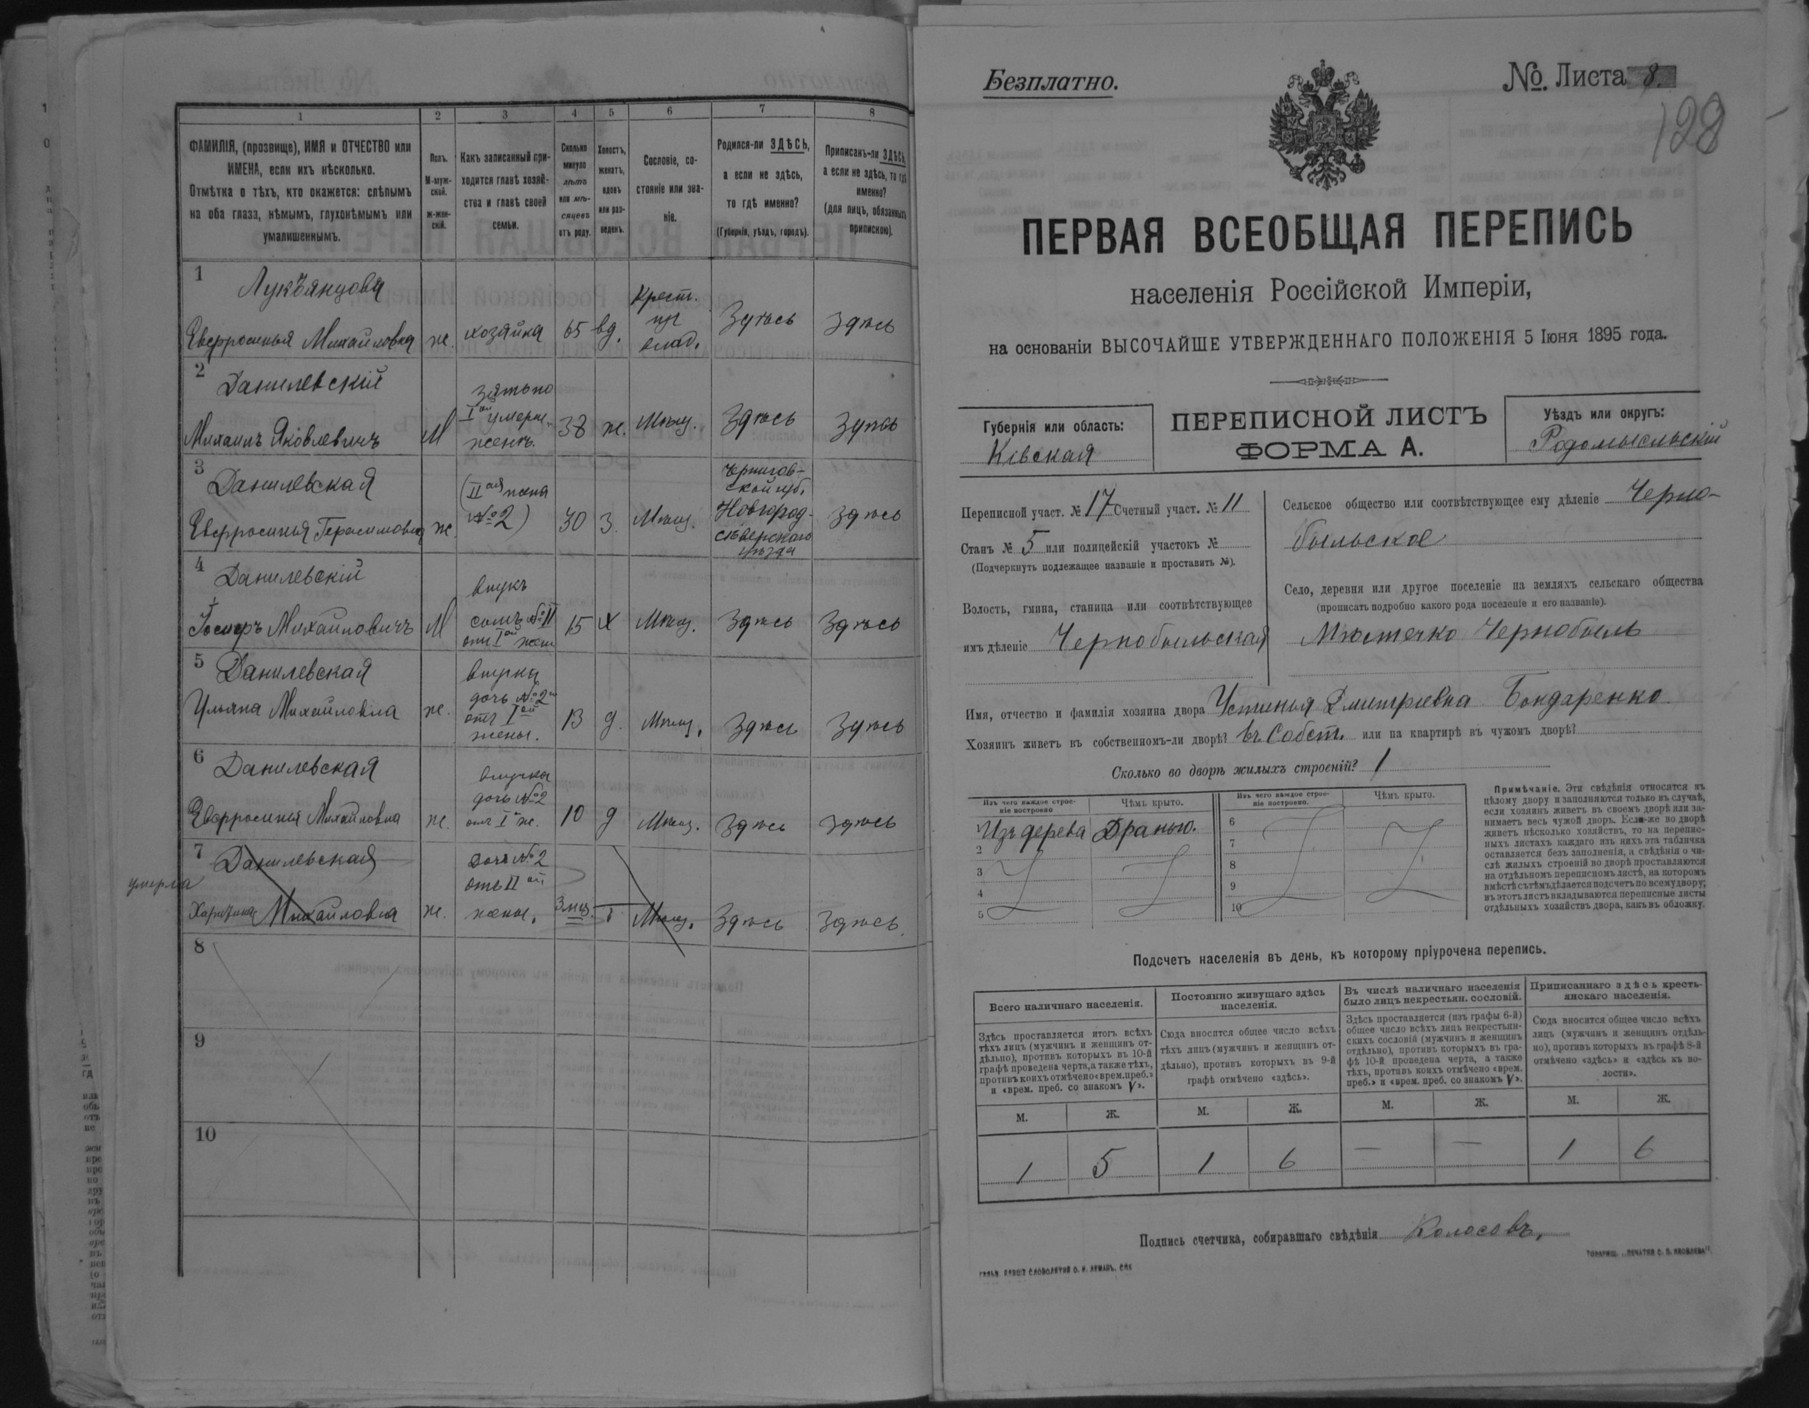 1 2 3 4 5 6 7 8
ФАМИЛІЯ, (прозвище), ИМЯ и ОТЧЕСТВО или
ИМЕНА, если ихъ нѣсколько.
Отмѣтка о тѣхъ, кто окажется: слѣпымъ
на оба глаза, нѣмымъ, глухонѣмымъ или
умалишеннымъ.
Полъ.
М-муж-
ской.
ж-жен-
скій.
Какъ записанный при-
ходится главѣ хозяй-
ства и главѣ своей
семьи.
Сколько
минуло
лѣтъ
или мѣ-
сяцевъ
отъ роду.
Холостъ,
женатъ,
вдовъ
или раз-
веденъ.
Сословіе, со-
стояніе или зва-
ніе.
Родился-ли ЗДѢСЬ,
а если не здѣсь,
то гдѣ именно?
(Губернія, уѣздъ, городъ).
Приписанъ-ли ЗДѢСЬ,
а если не здѣсь, то гдѣ
именно?
(для лицъ, обязанныхъ
припискою).
1
Евфросинья Михайловна ж. хозяйка 65 вд. Крест. Здѣсь Здѣсь
2 Данилевскій
Михаилъ Яковлевичъ М зять по I ой умерш. женѣ. 38 ж. Мѣщ. Здѣсь Здѣсь
3 Данилевская
Евфросинья Герасимовна ж. (II ая жена №2) 30 з. Мѣщ. Чернигов-
ской губ.
Новгород-
сѣверскаго
уѣзда Здѣсь
4 Данилевскій
Михайловичъ М внукъ 15 х Мѣщ. Здѣсь Здѣсь
5 Данилевская
Ульяна Михайловна ж. внучка
дочь №2
отъ I ой
жены. 13 д. Мѣщ. Здѣсь Здѣсь
6 Данилевская
Евфросинья Михайловна ж. внучка
дочь №2
отъ I ж. 10 д Мѣщ. Здѣсь Здѣсь
7 Данилевская
умерла
Михайловна ж. дочь №2
отъ II ой
жены. 3 мѣс. Мѣщ. Здѣсь Здѣсь
8
9
10
Безплатно.
№. Листа 8.
128
ПЕРВАЯ ВСЕОБЩАЯ ПЕРЕПИСЬ
населенія Россійской Имперіи,
на основаніи ВЫСОЧАЙШЕ УТВЕРЖДЕННАГО ПОЛОЖЕНІЯ 5 Іюня 1895 года.
Губернія или область:
Кіевская
ПЕРЕПИСНОЙ ЛИСТЪ
ФОРМА А.
Уѣздъ или округъ:
Радомысльскій
Переписной участ. № 17 Счетный участ. № 11
Станъ № 5 или полицейскій участокъ №
(Подчеркнуть подлежащее названіе и проставить №).
Волость, гмина, станица или соотвѣтствующее
имъ дѣленіе Чернобыльская
Сельское общество или соотвѣтствующее ему дѣленіе Черно-
быльское
Село, деревня или другое поселеніе на земляхъ сельскаго общества
(прописать подробно какого рода поселеніе и его названіе).
Мѣстечко Чернобыль
Имя, отчество и фамилія хозяина двора Устинья Дмитріевна Бондаренко.
Хозяинъ живетъ въ собственномъ-ли дворѣ? въ собст. или на квартирѣ въ чужомъ дворѣ?
Сколько во дворѣ жилыхъ строеній? 1
Изъ чего каждое строе-
ніе построено
Чѣмъ крыто.
Изъ чего каждое строе-
ніе построено.
Чѣмъ крыто.
1 Изъ дерева Дранью.
2
3
4
5
6
7
8
9
10
Примѣчаніе. Эти свѣдѣнія относятся къ
цѣлому двору и заполняются только въ случаѣ,
если хозяинъ живетъ въ своемъ дворѣ или за-
нимаетъ весь чужой дворъ. Если-же во дворѣ
живетъ нѣсколько хозяйствъ, то на перепис-
ныхъ листахъ каждаго изъ нихъ эта табличка
оставляется безъ заполненія, а свѣдѣнія о чи-
слѣ жилыхъ строеній во дворѣ проставляются
на отдѣльномъ переписномъ листѣ, на которомъ
вмѣстѣ съ тѣмъ дѣлается подсчетъ по всему двору;
въ этотъ листъ вкладываются переписные листы
отдѣльныхъ хозяйствъ двора, какъ въ обложку.
Подсчетъ населенія въ день, къ которому пріурочена перепись.
Всего наличнаго населенія.
Постоянно живущаго здѣсь
населенія.
Въ числѣ наличнаго населенія
было лицъ некрестьян. сословій.
Приписаннаго здѣсь кресть-
янскаго населенія.
Здѣсь проставляется итогъ всѣхъ
тѣхъ лицъ (мужчинъ и женщинъ от-
дѣльно), противъ которыхъ въ 10-й
графѣ проведена черта, а также тѣхъ,
противъ коихъ отмѣчено «врем. преб.»
и «врем. преб. со знакомъ V».
Сюда вносится общее число всѣхъ
тѣхъ лицъ (мужчинъ и женщинъ от-
дѣльно), противъ которыхъ въ 9-й
графѣ отмѣчено «здѣсь».
Здѣсь проставляется (изъ графы 6-й)
общее число всѣхъ лицъ некрестьян-
скихъ сословій (мужчинъ и женщинъ
отдѣльно), противъ которыхъ въ гра-
фѣ 10-й проведена черта, а также
тѣхъ, противъ коихъ отмѣчено «врем.
преб.» и «врем. преб. со знакомъ V».
Сюда вносится общее число всѣхъ
лицъ (мужчинъ и женщинъ отдѣль-
но), противъ которыхъ въ графѣ 8-й
отмѣчено «здѣсь» и «здѣсь въ во-
лости».
М. Ж. М. Ж. М. Ж. М. Ж.
1 5 1 6 — — 1 6
Подпись счетчика, собиравшаго свѣдѣнія Колосовъ.